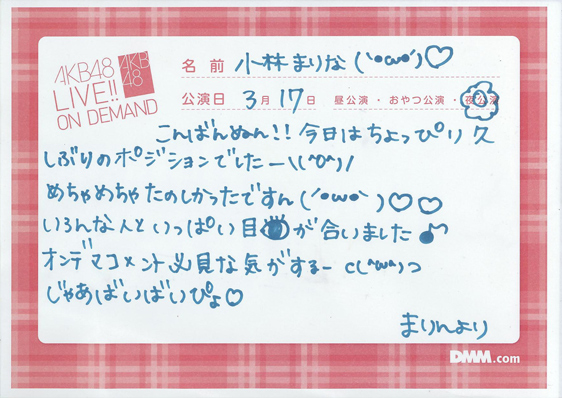 AKB48
LIVE!!
ON DEMAND
AKB
48
名前 小林まりな(´•ω•`)♡
公演日 3月17日 昼公演・おやつ公演・夜公演
こんばんぬん!!今日はちょっぴり久
しぶりのポジションでしたー\\(^o^)/
めちゃめちゃたのしかったですん(´•ω•`)♡♡
いろんな人といっぱい目👁が合いました♪
オンデマコメント必見な気がするー c(^ω^)っ
じゃあばいばいぴょ♡
まりんより
DMM.com